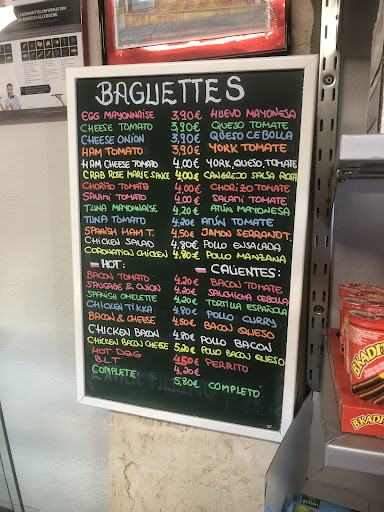 LEBENSMITTELINFORMATION
IM BEREICH ALLERGENE
BAGUETTES
EGG MAYONNAISE 3,90€ HUEVO MAYONESA
CHEESE TOMATO 3,90€ QUESO TOMATE
CHEESE ONION 3,90€ QUESO CEBOLLA
HAM TOMATO 3,90€ YORK TOMATE
HAM CHEESE TOMATO 4,00€ YORK, QUESO, TOMATE
CRAB ROSE MARIE SAUCE 4,00€ CANGREJO SALSA ROSA
CHORIZO TOMATO 4,00€ CHORIZO TOMATE
SALAMI TOMATO 4,00€ SALAMI TOMATE
TUNA MAYONNAISE 4,20€ ATÚN MAYONESA
TUNA TOMATO 4,20€ ATÚN TOMATE
SPANISH HAM T. 4,50€ JAMON SERRANO T.
CHICKEN SALAD 4,80€ POLLO ENSALADA
CORONATION CHICKEN 4,80€ POLLO MANZANA
HOT: CALIENTES:
BACON TOMATO 4,20€ BACON TOMATE
SAUSAGE & ONION 4,20€ SALCHICHA CEBOLLA
SPANISH OMELETTE 4,20€ TORTILLA ESPAÑOLA
CHICKEN TIKKA 4,80€ POLLO CURRY
BACON & CHEESE 4,50€ BACON QUESO
CHICKEN BACON 4,80€ POLLO BACON
CHICKEN BACON CHEESE 5,20€ POLLO BACON QUESO
HOT DOG 4,50€ PERRITO
B.L.T 4,20€
COMPLETE 5,80€ COMPLETO